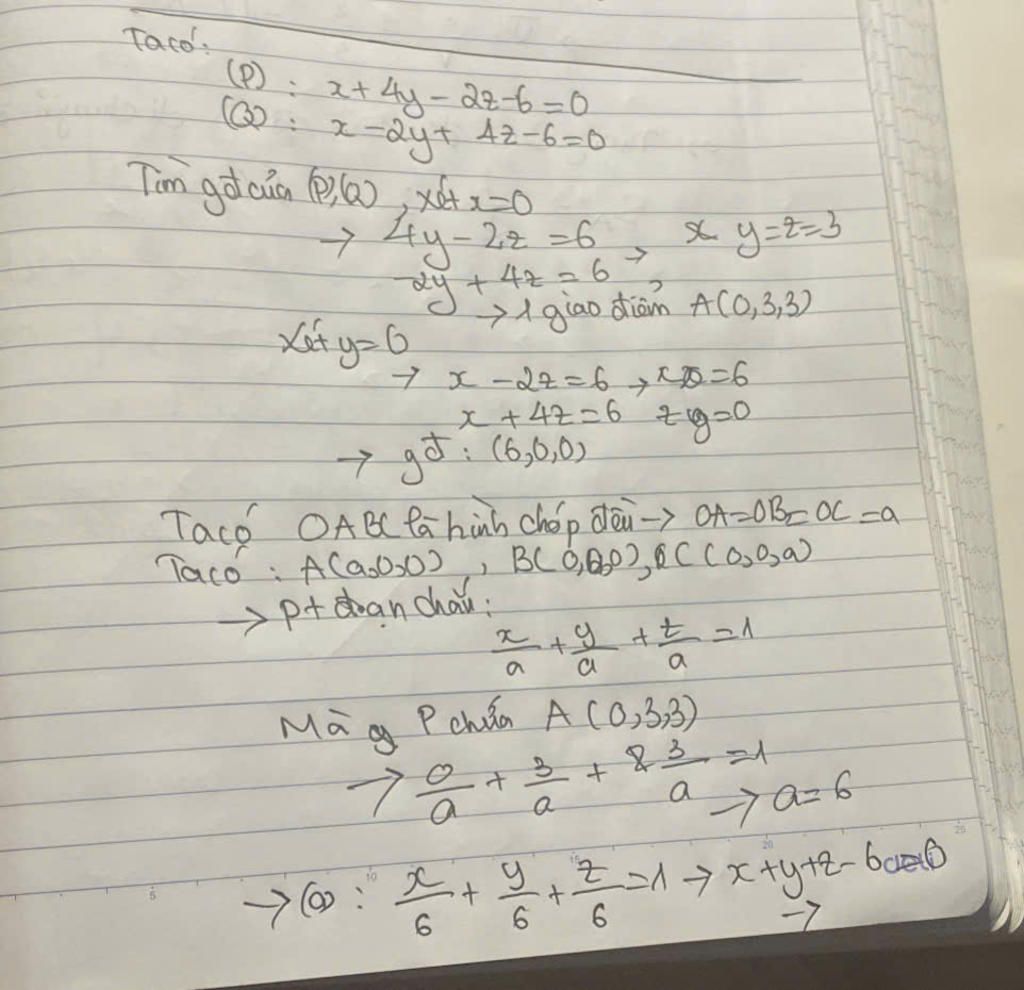 Ta có:
(P) : x + 4y - 2z - 6 = 0
(Q) : x - 2y + 4z - 6 = 0
Tìm gđ của (P),(Q), xét x=0
→ 4y - 2z = 6 → y=z=3
-2y + 4z = 6
→ 1 giao điểm A(0,3,3)
Xét y=0
→ x - 2z = 6 → x = 6
x + 4z = 6 z = 0
→ gđ : (6,0,0)
Ta có OABC là hình chóp đều → OA=OB=OC=a
Ta có : A(a,0,0), B(0,a,0), C(0,0,a)
→ pt đoạn chắn:
x/a + y/a + z/a = 1
Mà P chứa A(0,3,3)
→ 0/a + 3/a + 3/a = 1
→ a = 6
→ (Q) : x/6 + y/6 + z/6 = 1 → x+y+z - 6 = 0
→
5 10 15 20 25